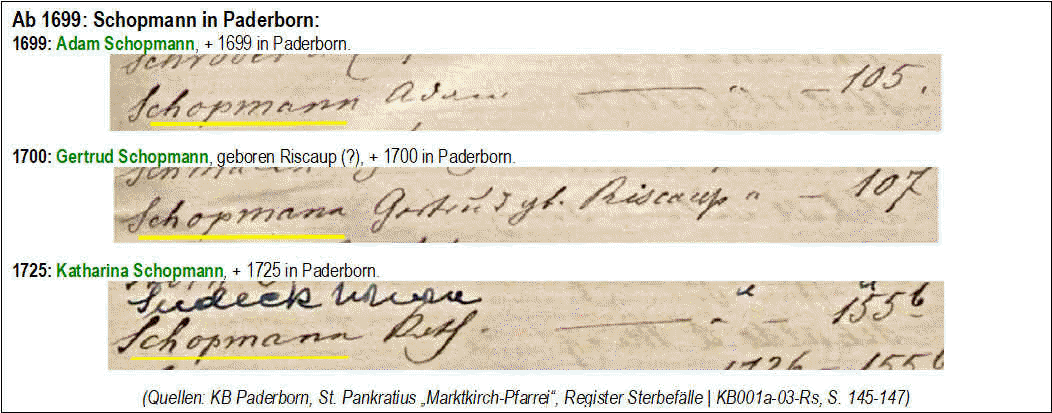 Ab 1699: Schopmann in Paderborn:
1699: Adam Schopmann, + 1699 in Paderborn.
Schopmann Adam — „ — 105.
1700: Gertrud Schopmann, geboren Riscaup (?), + 1700 in Paderborn.
Schopmann Gertrud gb. Riscaup „ — 107
1725: Katharina Schopmann, + 1725 in Paderborn.
Sudeck „ 155b
Schopmann Kath. — „ —
1726 — 155b
(Quellen: KB Paderborn, St. Pankratius „Marktkirch-Pfarrei“, Register Sterbefälle | KB001a-03-Rs, S. 145-147)